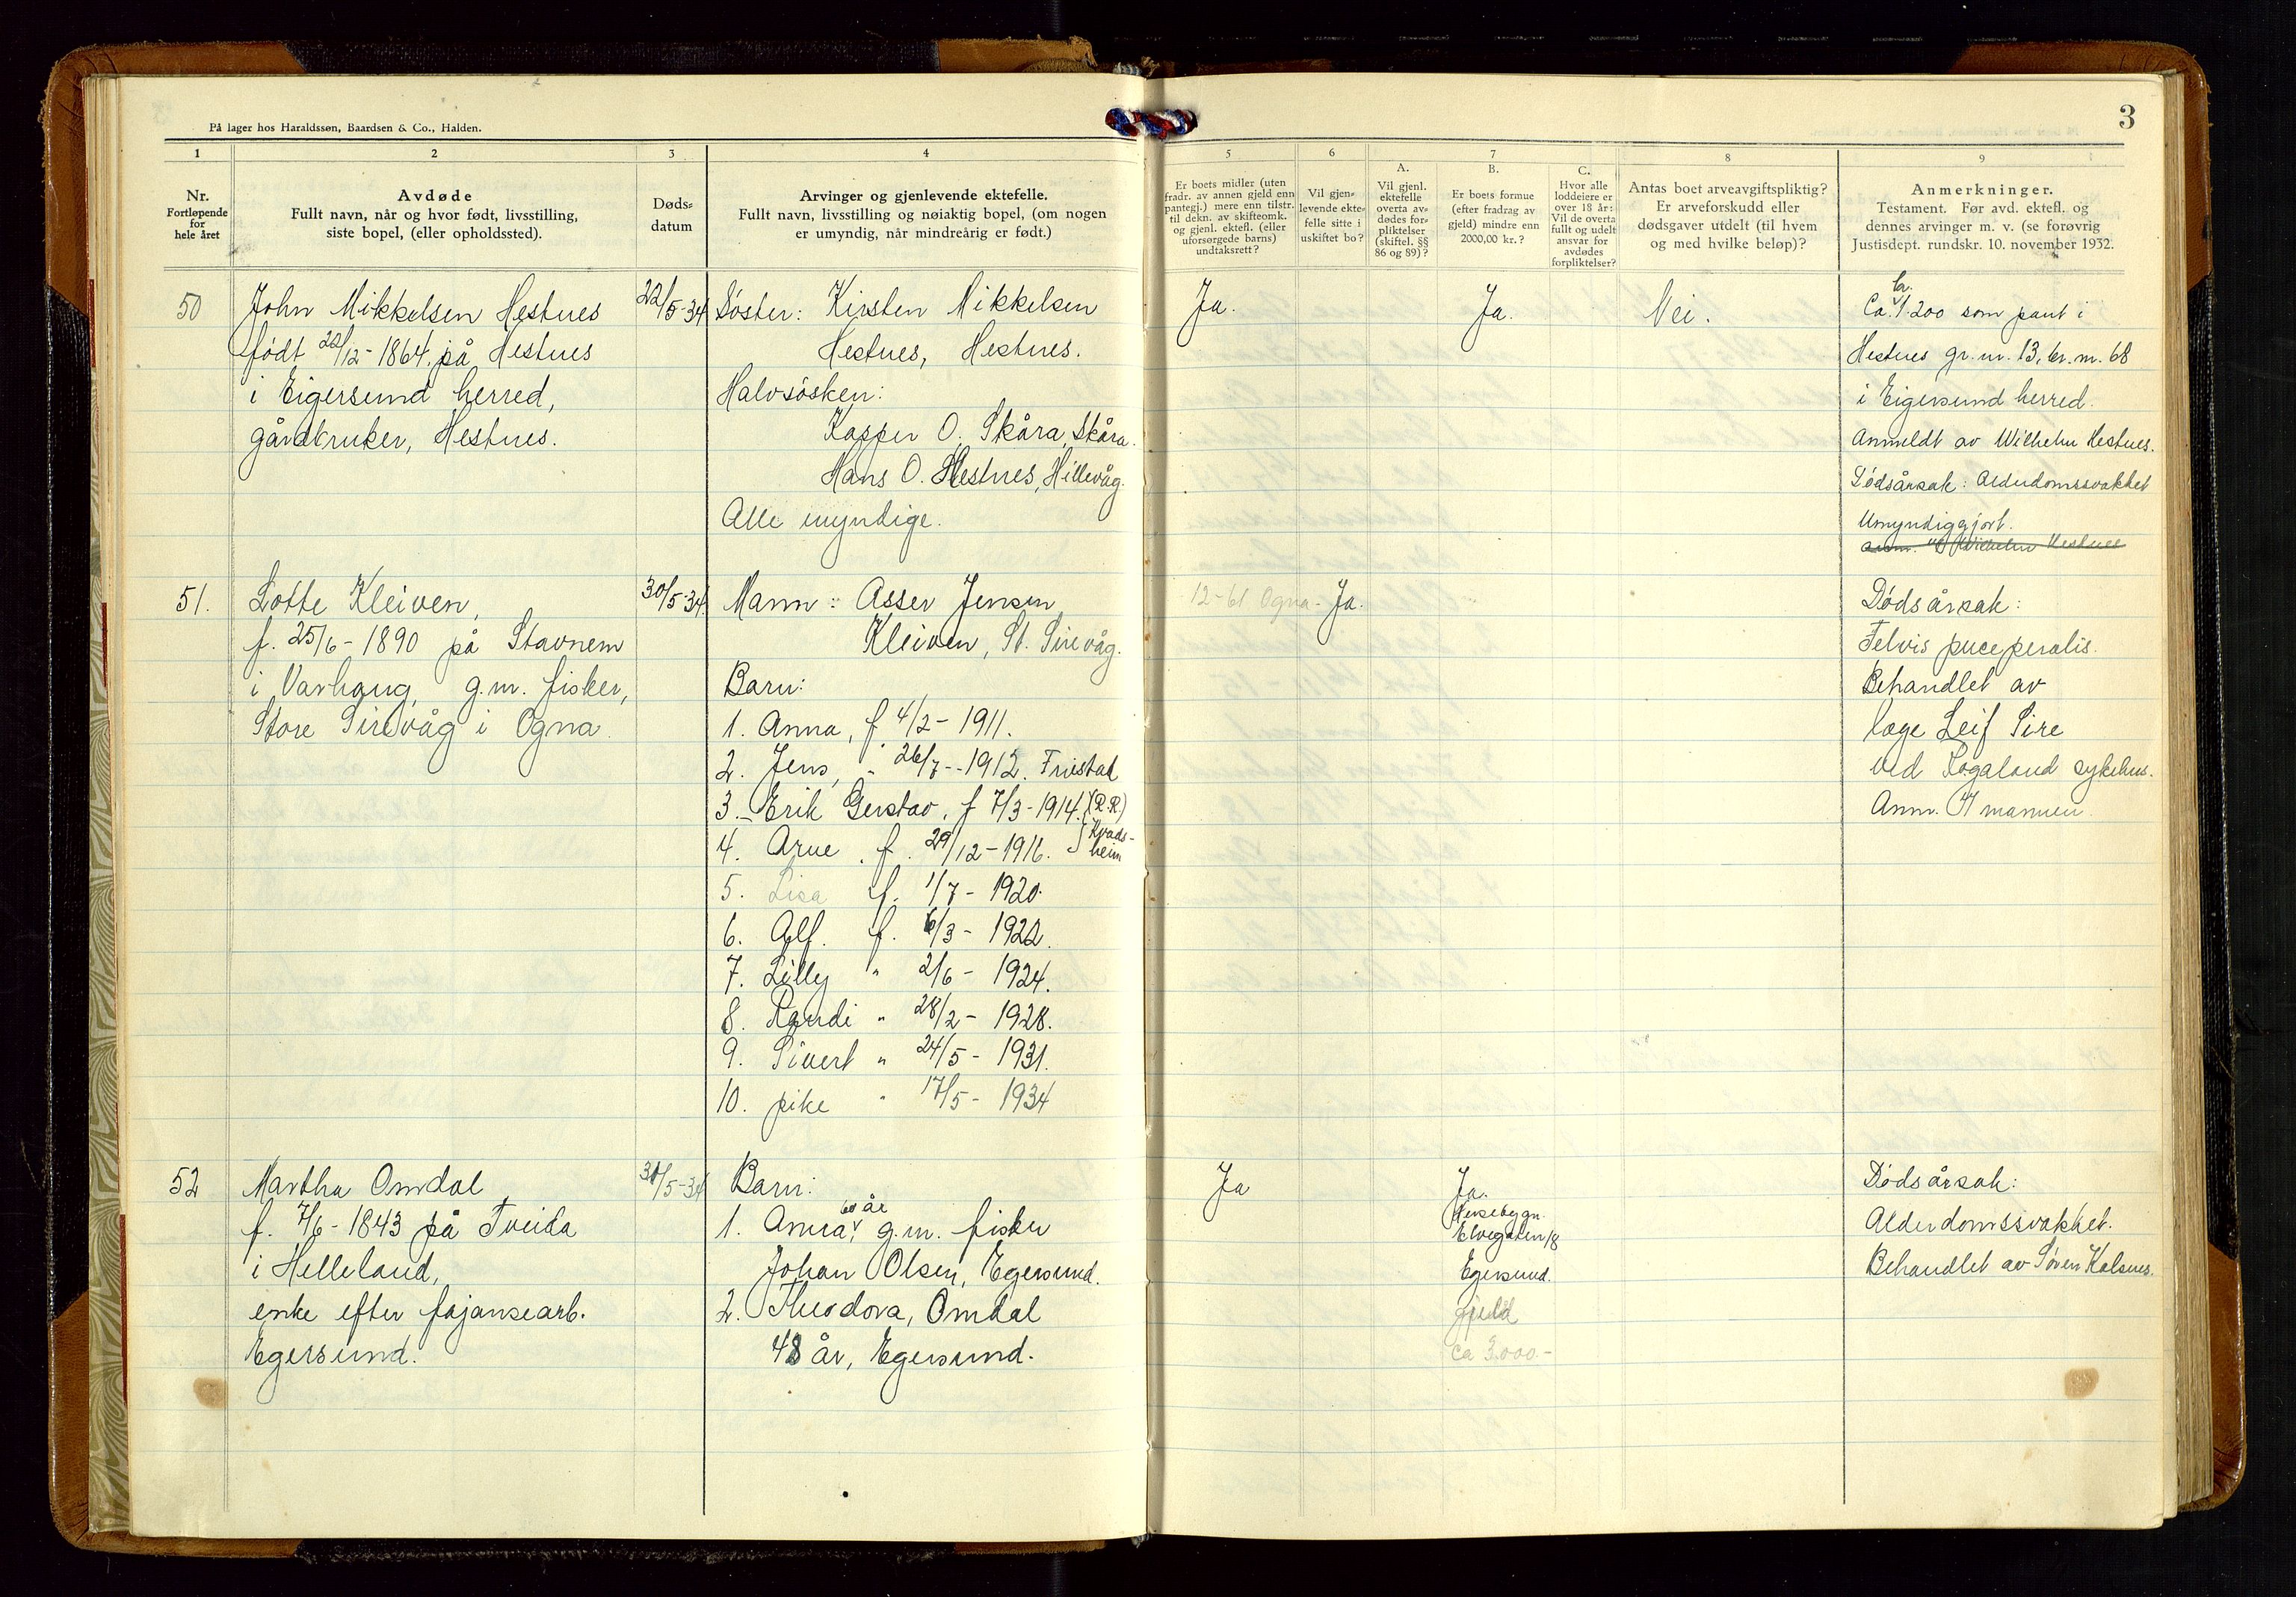 På lager hos Haraldssøn, Baardsen & Co., Halden.
3
1
2
3
4
5
6
7
8
9
Nr.
Fortløpende
for
hele året
Avdøde
Fullt navn, når og hvor født, livsstilling,
siste bopel, (eller opholdssted).
Døds-
datum
Arvinger og gjenlevende ektefelle.
Fullt navn, livsstilling og nøiaktig bopel, (om nogen
er umyndig, når mindreårig er født.)
Er boets midler (uten
fradr. av annen gjeld enn
pantegj.) mere enn tilstr.
til dekn. av skifteomk.
og gjenl. ektefl. (eller
uforsørgede barns)
undtaksrett?
Vil gjen-
levende ekte-
felle sitte i
uskiftet bo?
A.
Vil gjenl.
ektefelle
overta av-
dødes for-
pliktelser
(skiftel. §§
86 og 89)?
B.
Er boets formue
(efter fradrag av
gjeld) mindre enn
2000,00 kr.?
C.
Hvor alle
loddeiere er
over 18 år:
Vil de overta
fullt og udelt
ansvar for
avdødes
forpliktelser?
Antas boet arveavgiftspliktig?
Er arveforskudd eller
dødsgaver utdelt (til hvem
og med hvilke beløp)?
Anmerkninger.
Testament. Før avd. ektefl. og
dennes arvinger m. v. (se forøvrig
Justisdept. rundskr. 10. november 1932.
50
John Mikkelsen Hestnes
født 22/12-1864, på Hestnes
i Eigersund herred,
gårdbruker, Hestnes.
22/5-34
Søster: Kirsten Mikkelsen
Hestnes, Hestnes.
Halvsøsken:
Kasper O. Skåra, Skåra.
Hans O. Hestnes, Hillevåg.
Alle myndige.
Ja.
Ja.
Nei.
kr.
Ca. 1.200 som pant i
Hestnes gr.nr. 13, br.nr. 68
i Eigersund herred.
Anmeldt av Wilhelm Hestnes.
Dødsårsak: Alderdomssvakhet
Umyndiggjort.
anm. Wilhelm Hestnes
51.
Lotte Kleiven,
f. 25/6-1890 på Stavnem
i Varhaug, g.m. fisker,
Store Sirevåg i Ogna.
30/5-34.
Mann: Asser Jensen
Kleiven, St. Sirevåg.
Barn:
1. Anna, f 4/2-1911.
2. Jens, " 26/7-1912. Fristad
3. Erik Gustav, f 7/3-1914. (R.R.)
4. Arne, f. 29/12-1916. Kvads-
heim
5. Lisa f. 1/7-1920.
6. Alf. f. 6/3-1922.
7. Lilly " 2/6-1924.
8. Randi " 28/2-1928.
9. Sivert " 24/5-1931.
10. pike " 17/5-1934
12-61 Ogna.
Ja.
Dødsårsak:
Felvis puceperalis.
Behandlet av
læge Leif Sire
ved Rogaland sykehus.
Anm. av mannen.
52
Martha Omdal
f. 7/6-1843 på Tveida
i Helleland,
enke efter fajansearb.
Egersund.
31/5-34
Barn:
60 år
1. Anna, g.m. fisker
Johan Olsen, Egersund.
2. Theodora, Omdal
48 år, Egersund.
Ja
Ja.
Elvegaten 18
Egersund.
gjeld
ca 3.000.-
Dødsårsak:
Alderdomssvakhet.
Behandlet av Søren Kalsnes.